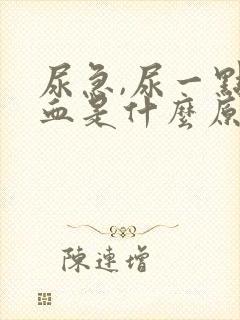 尿急,尿一點
血是什麼原
陳連增